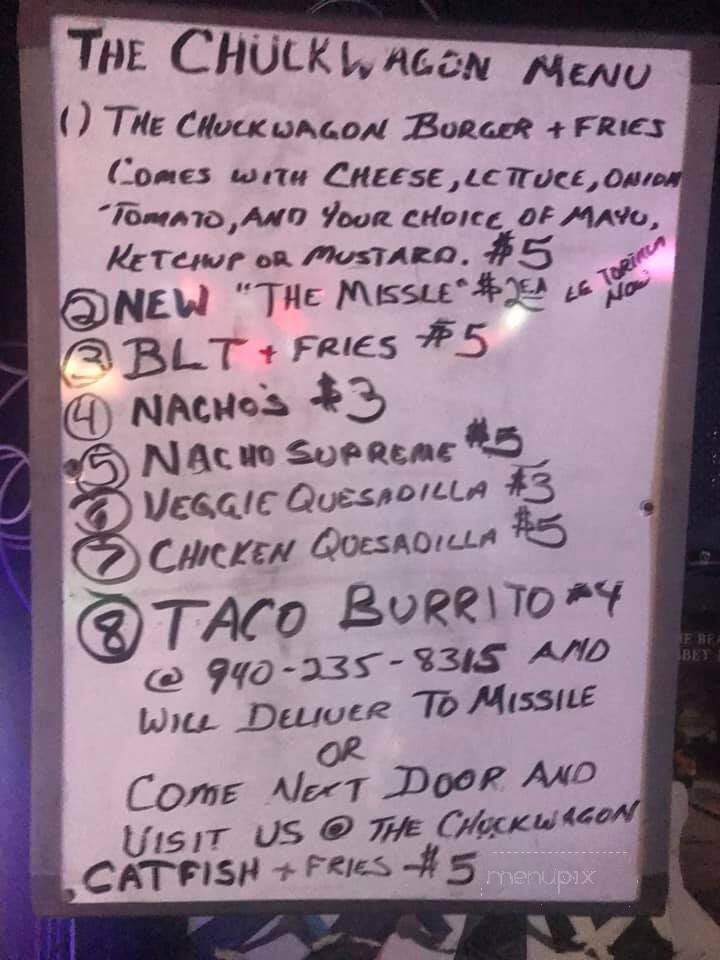 THE CHUCKWAGON MENU
1) THE CHUCKWAGON BURGER + FRIES
COMES WITH CHEESE, LETTUCE, ONION
TOMATO, AND YOUR CHOICE OF MAYO,
KETCHUP OR MUSTARD. $5
2 NEW "THE MISSLE" $2EA LG
NOW
3 BLT + FRIES $5
4 NACHO'S $3
5 NACHO SUPREME $5
6 VEGGIE QUESADILLA $3
7 CHICKEN QUESADILLA $5
8 TACO BURRITO $4
@ 940-235-8315 AND
WILL DELIVER TO MISSILE
OR
COME NEXT DOOR AND
VISIT US @ THE CHUCKWAGON
CATFISH + FRIES $5
menupix